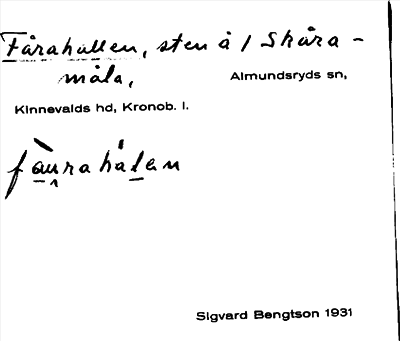 Fårahallen, sten å 1 Skåra-
måla,
Almundsryds sn,
Kinnevalds hd, Kronob. l.
fàu̯rahálen
Sigvard Bengtson 1931